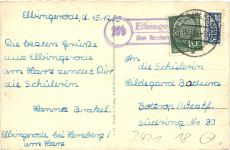 Elbingerode, d. 13.12.55
Die besten Grüße
aus Elbingerode
am Harz sendet Dir
die Schülerin
Hanna Brakel.
Elbingerode bei Herzberg /
am Harz
20b
über Herzberg
10
An die
Schülerin
Hildegard
Bottrop i/Westf.
Südring Nr. 80